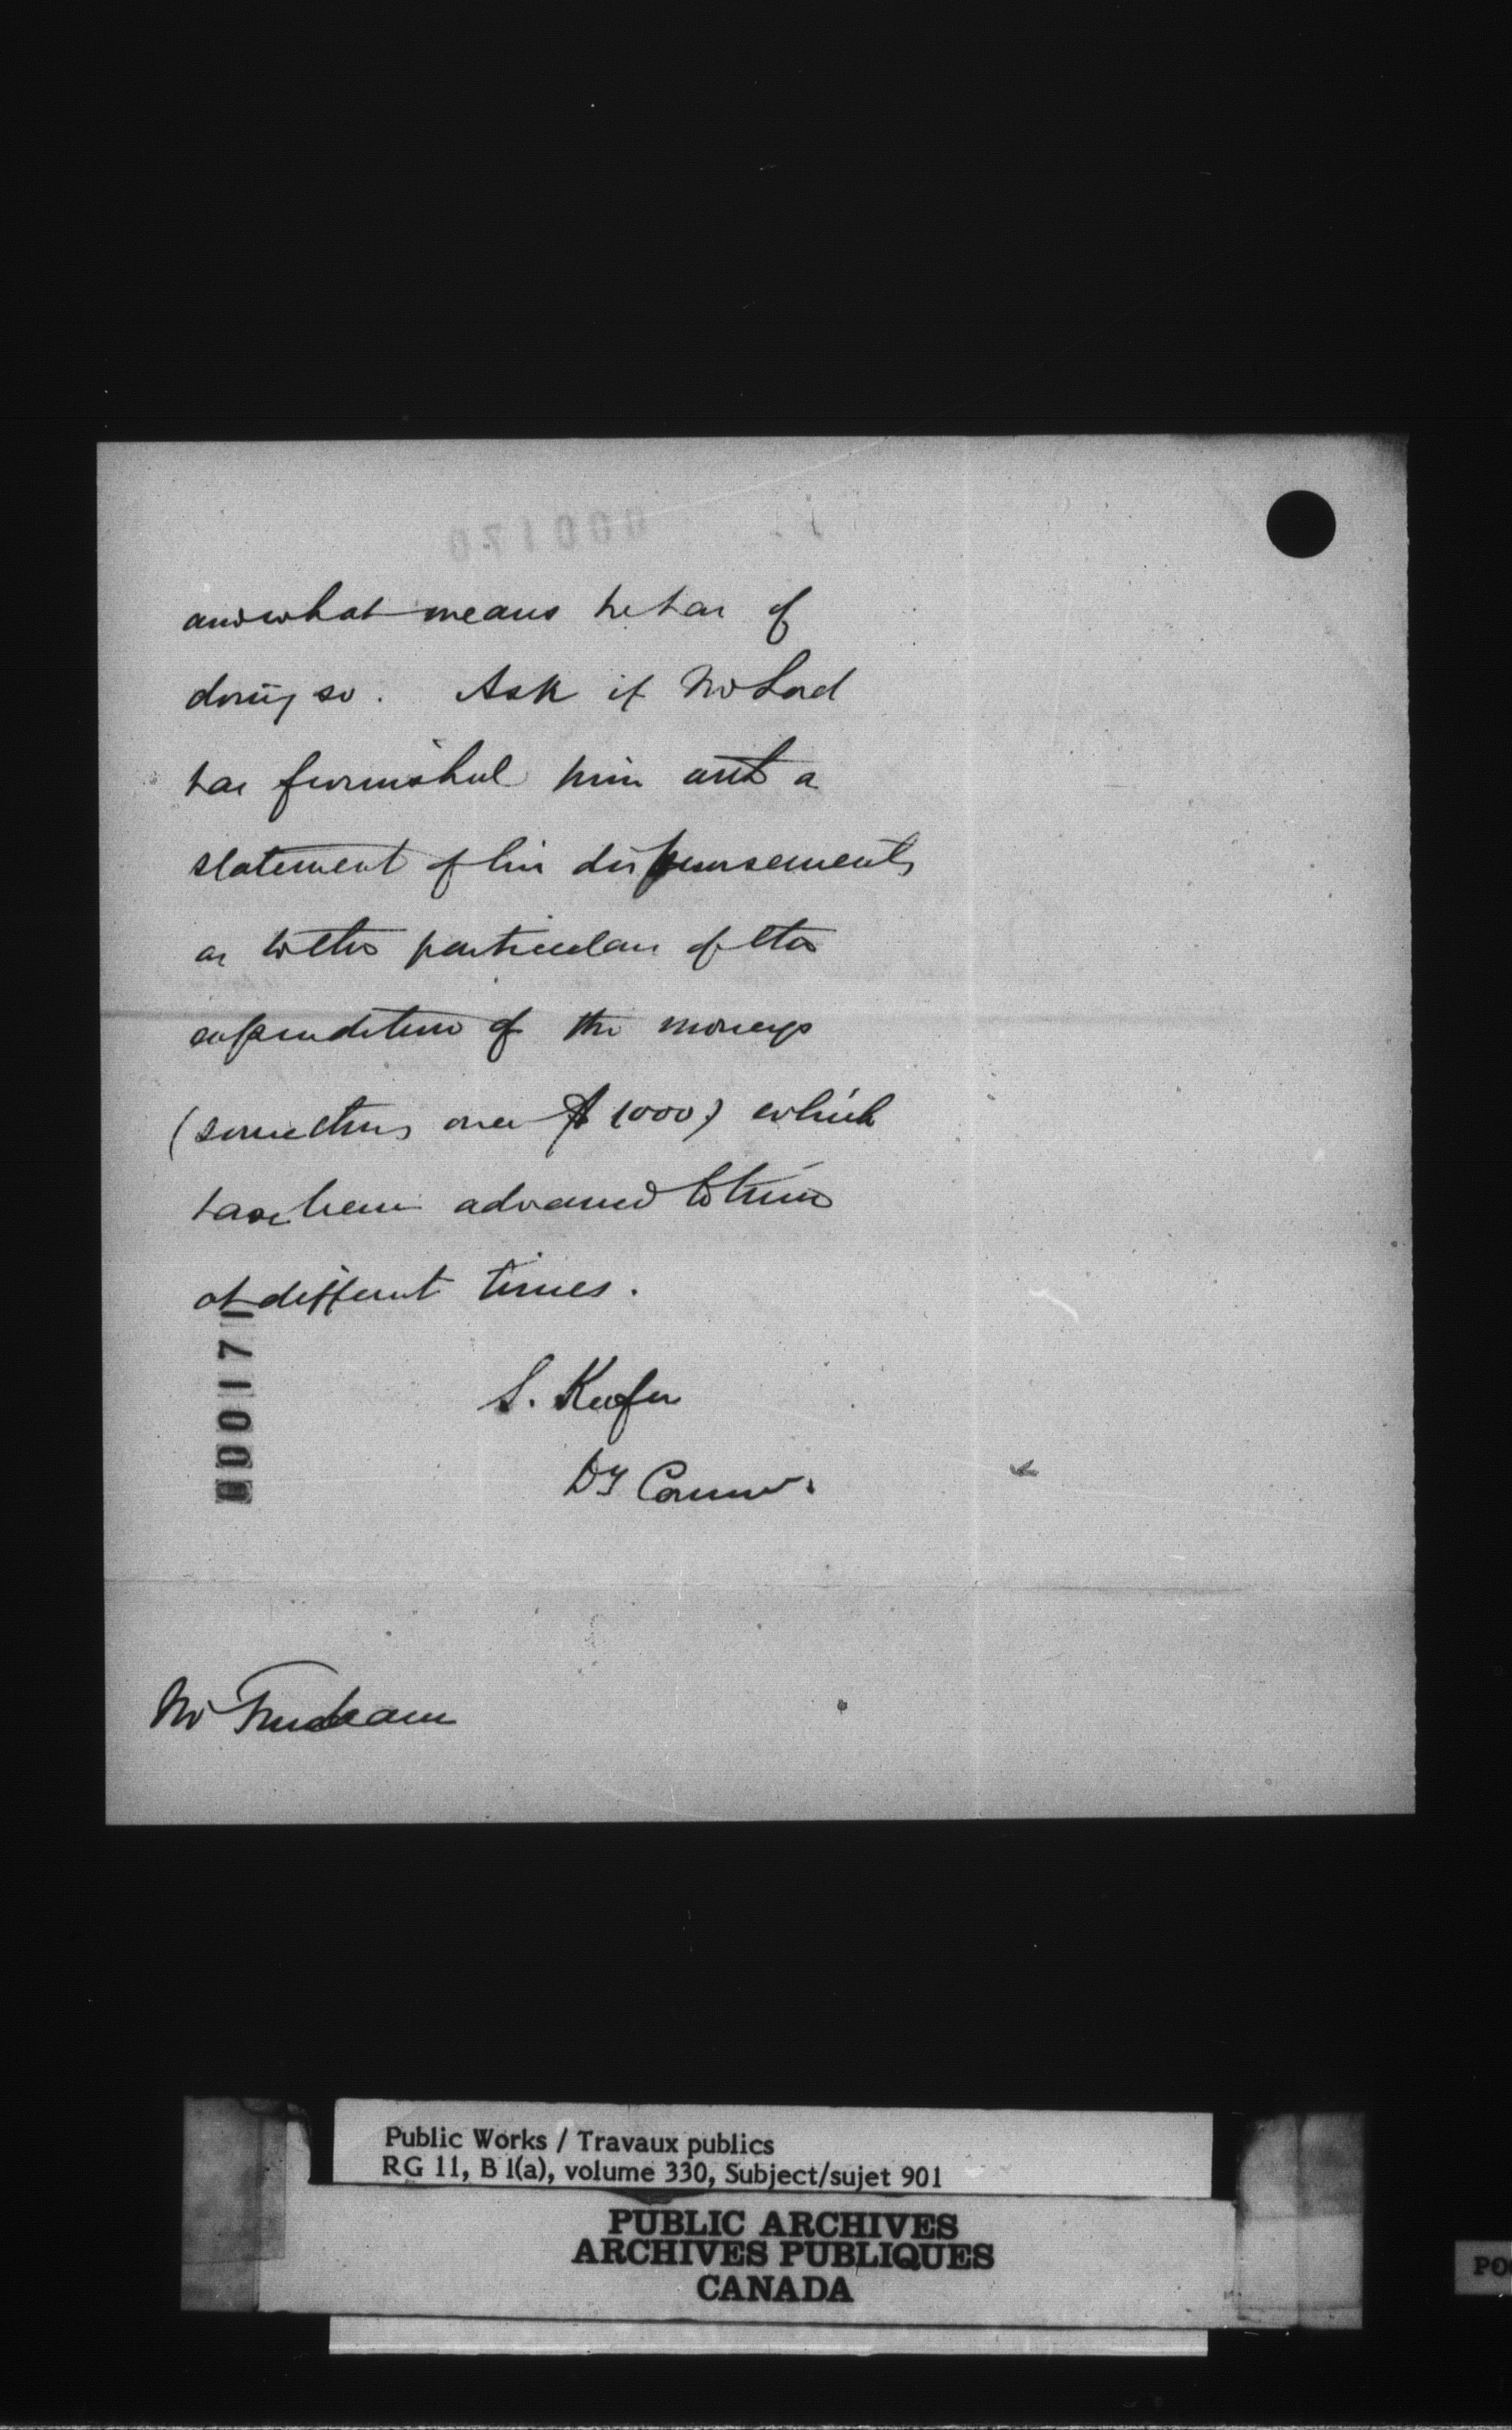 000170
and what means he has of
doing so. Ask if Mr Lord
has furnished him with a
statement of his disbursements
as to the particulars of the
expenditure of the moneys
(something over $1000) which
have been advanced to him
at different times.
000171
S. Keefer
Dy Commr.
Mr Trudeau
Public Works / Travaux publics
RG 11, B 1(a), volume 330, Subject/sujet 901
PUBLIC ARCHIVES
ARCHIVES PUBLIQUES
CANADA